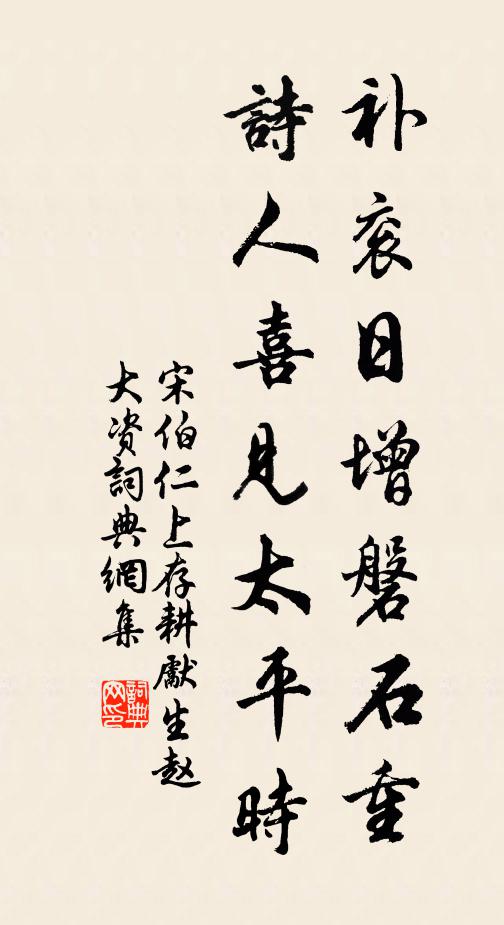 补衮日增磐石重
詩人喜見太平時
宋伯仁上存耕獻生赵
大资詞典網集
詞典网印